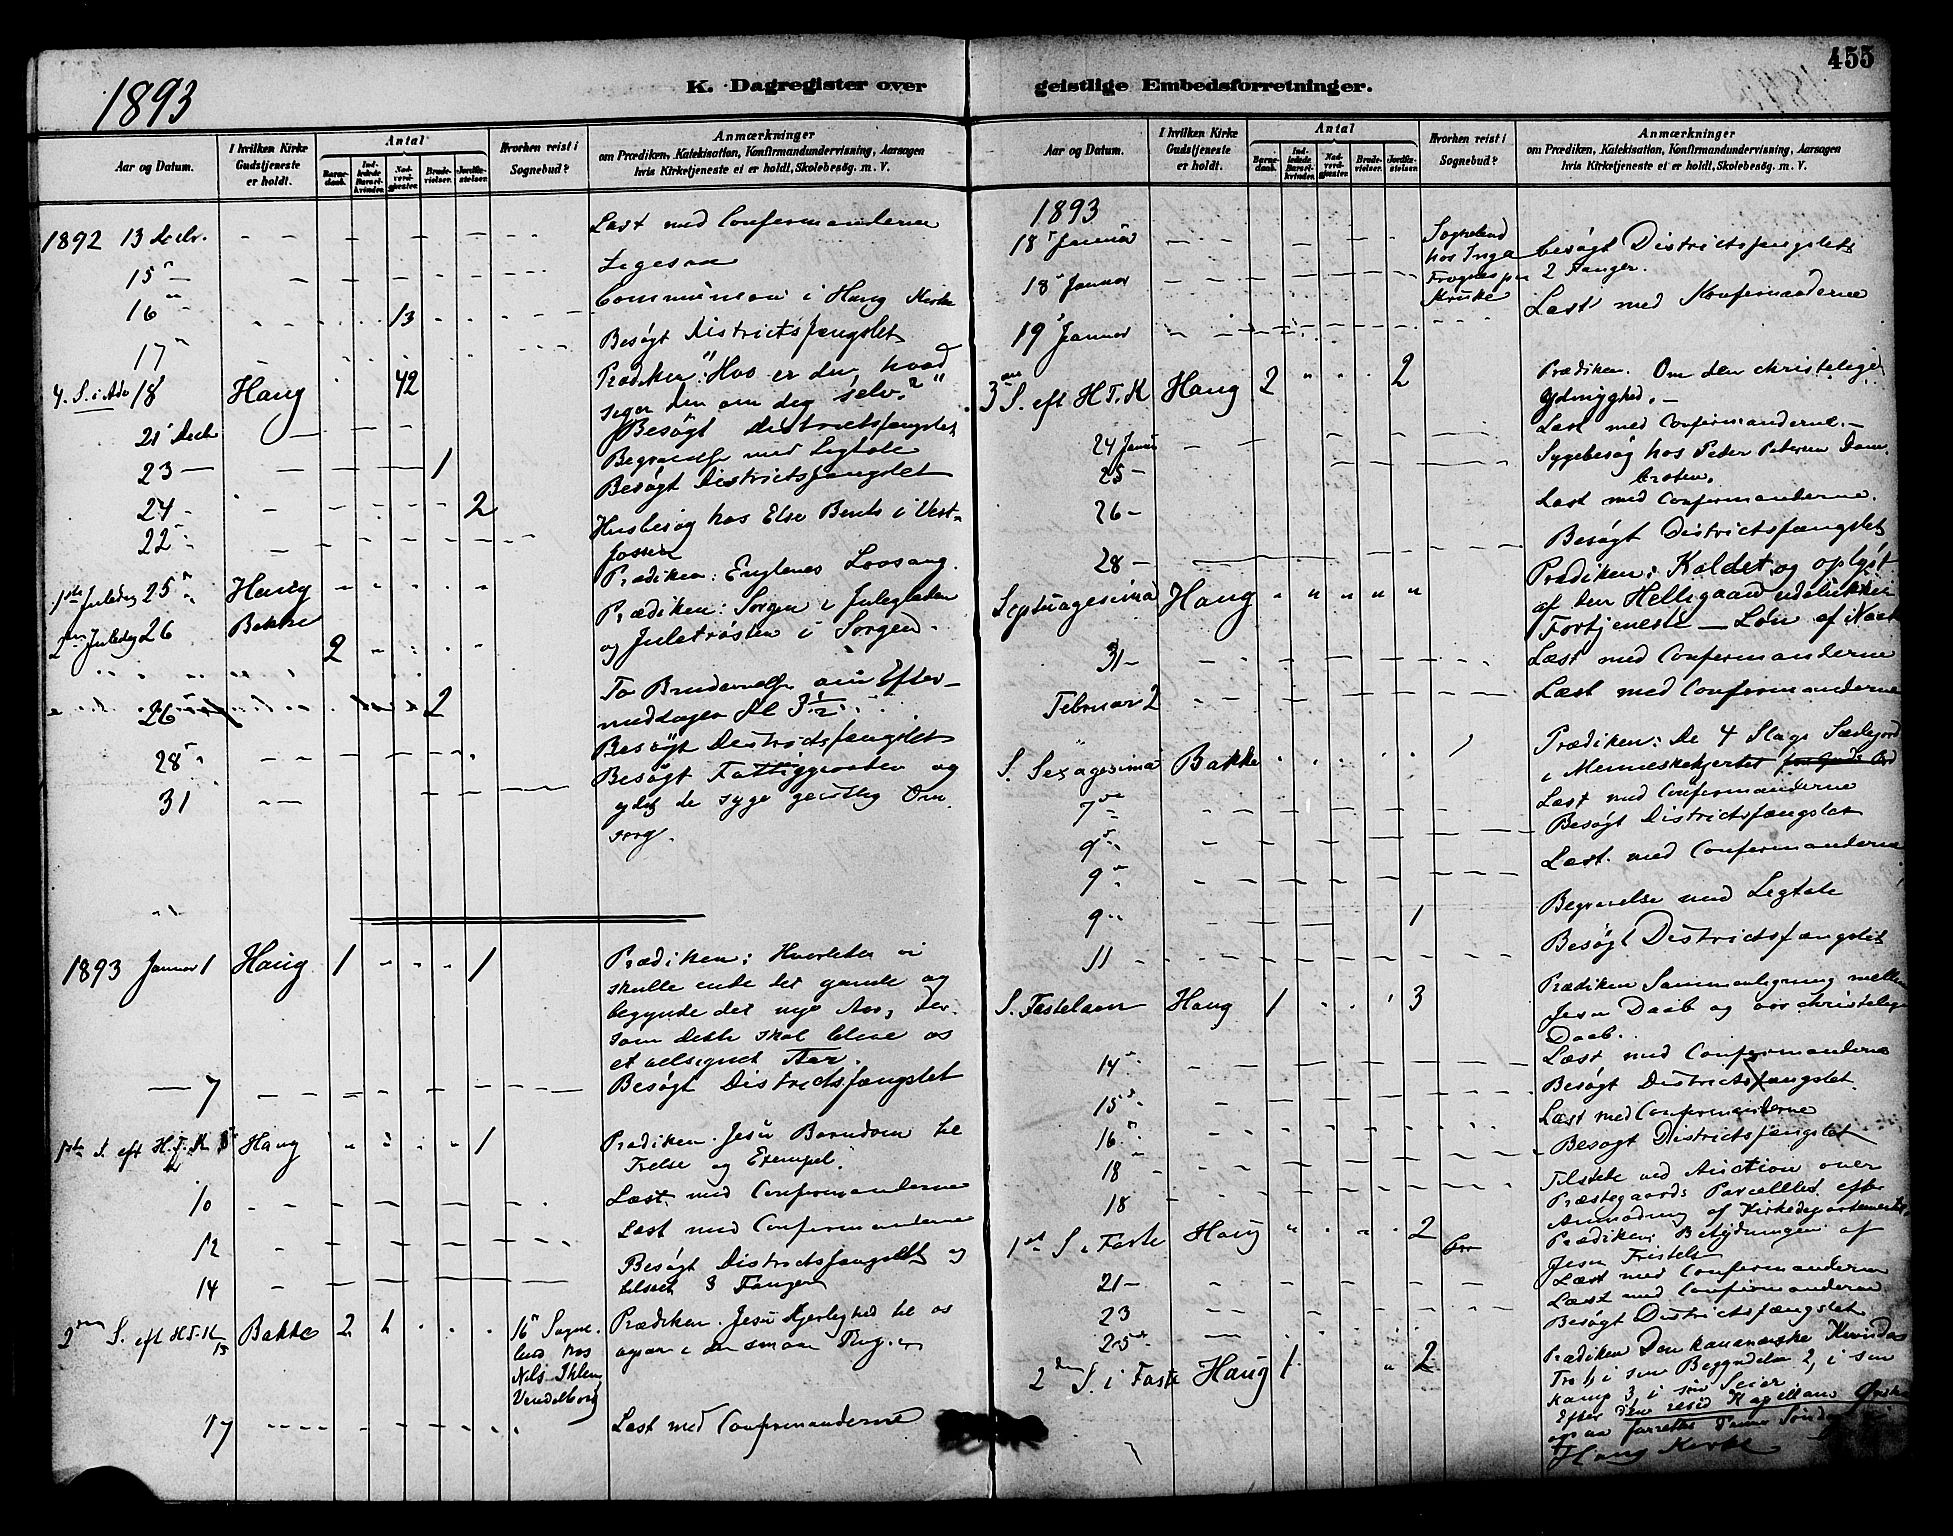 455
1893
K. Dagregister over
geistlige Embedsforretninger.
Aar og Datum.
I hvilken Kirke Gudstjeneste er holdt.
Antal
Barne-daab.
Ind-ledede Barsel-kvinder.
Nad-verd-gjæster.
Brude-vielser.
Jordfæ-stelser.
Hvorhen reist i Sognebud?
Anmærkninger
om Prædiken, Katekisation, Konfirmandundervisning, Aarsagen
hvis Kirketjeneste ei er holdt, Skolebesøg. m. V.
1892 13 Decbr. Læst med Confirmanderne
15 Ligesaa
16 13 Communion i Haug Kirke
17 Besøgt Districtsfængslet
4. S. i Adv 18 Haug 42 Prædiken: "Hvo er du, hvad
siger du om dig selv?"
21 Decbr Besøgt districtsfængslet
23 1 Begravelse med Ligtale
24 2 Besøgt Districtsfængslet
22 Husbesøg hos Else Bents i Vest-
fossen
1ste Juledag 25 Haug Prædiken: Englenes Lovsang.
2den Juledag 26 Bakke 2 Prædiken: Sorgen i Juleglæden
og Juletrøsten i Sorgen.
26 2 To Brudevielse om Efter-
middagen Kl 3 1/2
28 Besøgt Districtsfængslet
31 Besøgt Fattiggaarden og
ydet de syge geistlig Om-
sorg.
1893 Januar 1 Haug 1 1 Prædiken: Hvorledes vi
skulle ende det gamle og
begynde det nye Aar, der-
som dette skal blive os
et velsignet Aar.
7 Besøgt Districtsfængslet
1ste S. eft H.T.K Haug 1 Prædiken. Jesu Barndom til
Frelse og Exempel.
10 Læst med Confirmanderne
12 Læst med Confirmanderne
14 Besøgt Districtsfængslet og
3 Fanger
2den S. eft H.T.K 15 Bakke 2 1 Prædiken. Jesu Kjerlighed til os
ogsaa i de smaa Ting.
16 Sogne-
bud hos
Nils
17 Læst med Confirmanderne
Aar og Datum.
I hvilken Kirke Gudstjeneste er holdt.
Antal
Barne-daab.
Ind-ledede Barsel-kvinder.
Nad-verd-gjæster.
Brude-vielser.
Jordfæ-stelser.
Hvorhen reist i Sognebud?
Anmærkninger
om Prædiken, Katekisation, Konfirmandundervisning, Aarsagen
hvis Kirketjeneste ei er holdt, Skolebesøg. m. V.
1893
18 Januar Sognebud
hos Inga
besøgt Districtsfængslet
2 Fanger.
18 Januar
19 Januar Læst med Konfirmanderne
3die S. eft H.T.K Haug 2 2 Prædiken. Om den christelige
Ydmyghed.
24 Januar Læst med Confirmanderne.
25 Sygebesøg hos Peder Petersen
26 Læst med Confirmanderne.
28 Besøgt Districtsfængslet
Septuagesima Haug Prædiken: Kaldet og oplyst
af den Helligaand udelukker
Fortjeneste — Løn af
31 Læst med Confirmanderne
Februar 2 Læst med Confirmanderne
S. Sexagesima Bakke Prædiken: De 4 Slags Sædejord
i Menneskehjertet
7 Læst med Confirmanderne
9 Besøgt Districtsfængslet
9 Læst med Confirmanderne
9 1 Begravelse med Ligtale
11 Besøgt Districtsfængslet
S. Fastelavn Haug 1 3 Prædiken Sammenligning mellem
Jesu Daab og vor christelige
Daab.
14 Læst med Confirmanderne
15 Besøgt Districtsfængslet
16 Læst med Confirmanderne
18 Besøgt Districtsfængslet
18 Tilstede ved Auction over
Præstegaards Parcelled efter
Anmodning af Kirkedepartementet.
1ste S. i Faste Haug 2 Prædiken: Betydningen af
Jesu Fristelse
21 Læst med Confirmanderne
23 Læst med Confirmanderne
25 Besøgt Districtsfængslet
2den S. i Faste Haug 1 2 Prædiken Den kananæiske Kvindes
Tro 1, i sin Begyndelse 2, i sin
Kamp 3, i sin Seier.
Efter den resid Kapellans Ønske
ogsaa forrettes denne Søndag i
Haug Kirke